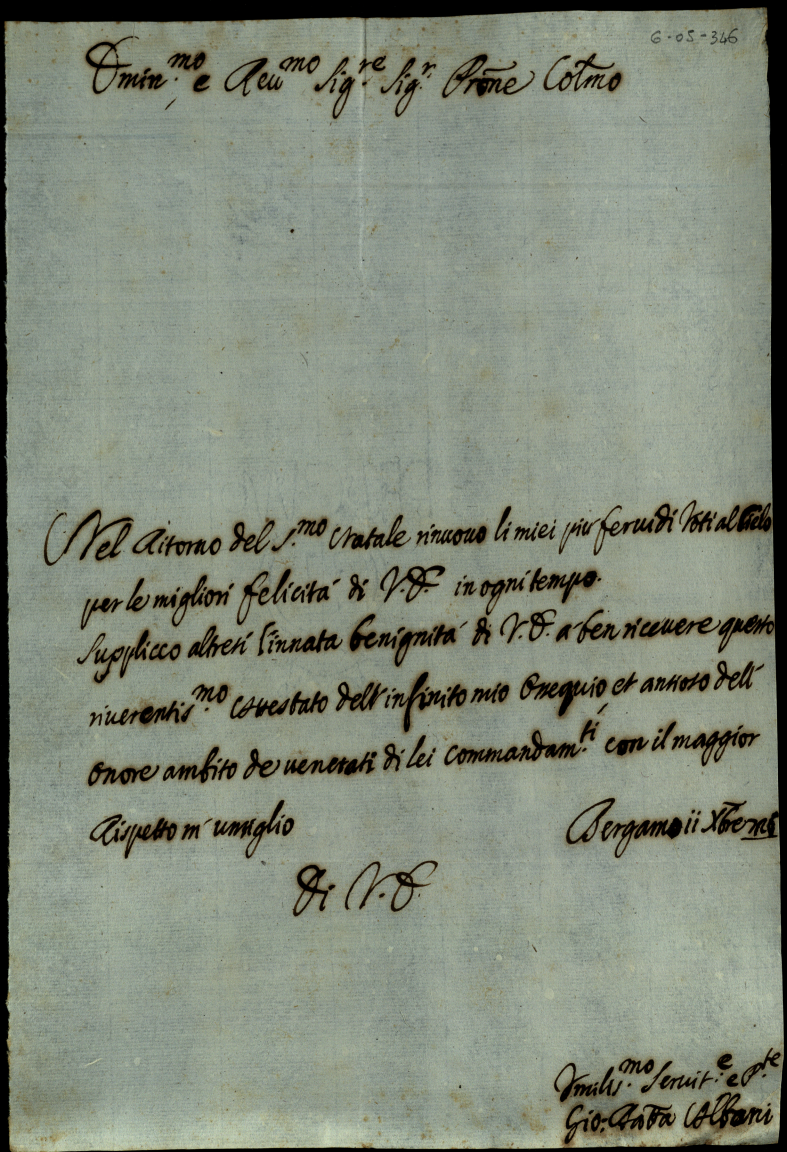 6-05-346
Emin.mo e Reu.mo Sig.re Sig.r Prōne Col̄mo
Nel Ritorno del S.mo Natale rinuouo li miei piu feruidi Voti al Cielo
per le migliori felicitá di V.E. in ogni tempo.
Supplicco altresi l'innata benignitá di V.E. á ben riceuere questo
riuerentis.mo Attestato dell'infinito mio Ossequio, et ansioso dell'
onore ambito de uenerati di lei commandam.ti, con il maggior
Rispetto m'umiglio
Bergamo ii Xbre
Di V.E.
Vmilis.mo Seruit.e e
Gio: Batta Albani